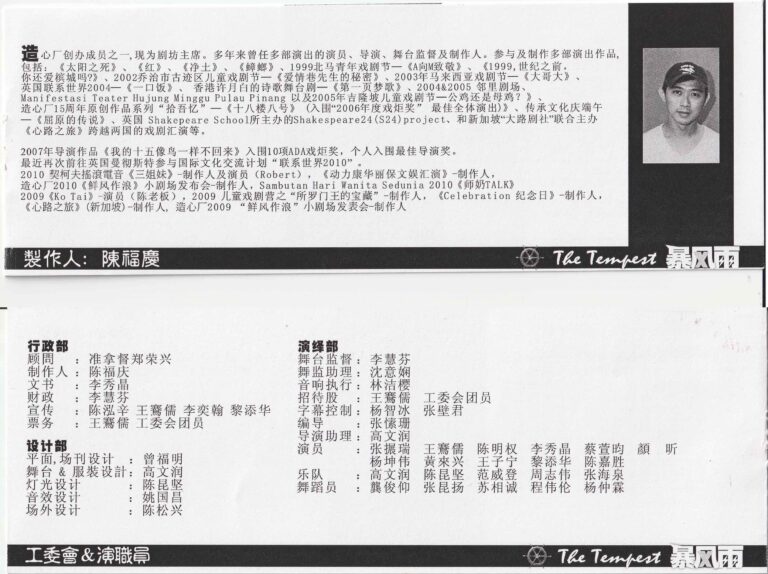 造心厂创办成员之一,现为剧坊主席。多年来曾任多部演出的演员、导演、舞台监督及制作人。参与及制作多部演出作品,
包括:《太阳之死》、《红》、《净土》、《蟑螂》、1999北马青年戏剧节—《A向M致敬》、《1999,世纪之前。
你还爱槟城吗?》、2002乔治市古迹区儿童戏剧节—《爱情巷先生的秘密》、2003年马来西亚戏剧节—《大哥大》、
英国联系世界2004—《一口饭》、 香港许月白的诗歌舞台剧—《第一页梦歌》、2004&2005 邻里剧场、
Manifestasi Teater Hujung Minggu Pulau Pinang 以及2005年吉隆坡儿童戏剧节—公鸡还是母鸡?》、
造心厂15周年原创作品系列“拾吾忆”—《十八楼八号》(入围“2006年度戏炬奖” 最佳全体演出)》、传承文化庆端午
—《屈原的传说》、英国 Shakepeare School所主办的Shakespeare24(S24)project、和新加坡“大路剧社”联合主办
《心路之旅》跨越两国的戏剧汇演等。
2007年导演作品《我的十五像鸟一样不回来》入围10项ADA戏炬奖,个人入围最佳导演奖。
最近再次前往英国曼彻斯特参与国际文化交流计划“联系世界2010”。
2010 契柯夫摇滾電音《三姐妹》-制作人及演员(Robert),《动力康华丽保文娱汇演》-制作人,
造心厂2010《鲜风作浪》小剧场发布会-制作人, Sambutan Hari Wanita Sedunia 2010《师奶TALK》
2009《Ko Tai》-演员(陈老板),2009 儿童戏剧营之“所罗门王的宝藏”-制作人, 《Celebration 纪念日》-制作人,
《心路之旅》(新加坡)-制作人, 造心厂2009 “鲜风作浪”小剧场发表会-制作人
製作人: 陳福慶
The Tempest 暴风雨
行政部
顾問 :准拿督郑荣兴
制作人 :陈福庆
文书 :李秀晶
财政 :李慧芬
宣传 :陈泓辛 王騫儒 李奕翰 黎添华
票务 :王騫儒 工委会团员
设计部
平面,场刊设计 :曾福明
舞台 & 服裝設計:高文润
灯光设计 :陈昆坚
音效设计 :姚国昌
场外设计 :陈松兴
演绎部
舞台监督:李慧芬
舞监助理:沈意娴
音响执行:林洁樱
招待股 :王騫儒 工委会团员
字幕控制:杨智冰 张壁君
编导 :张愫珊
导演助理:高文润
演员 :张振瑞 王騫儒 陈明权 李秀晶 蔡萱昀 顏 听
杨坤伟 黄來兴 王子宁 黎添华 陈嘉胜
乐队 :高文润 陈昆坚 范威登 周志伟 张海泉
舞蹈员 :龔俊仰 张昆扬 苏相诚 程伟伦 杨仲霖
工委會&演職員
The Tempest 暴风雨